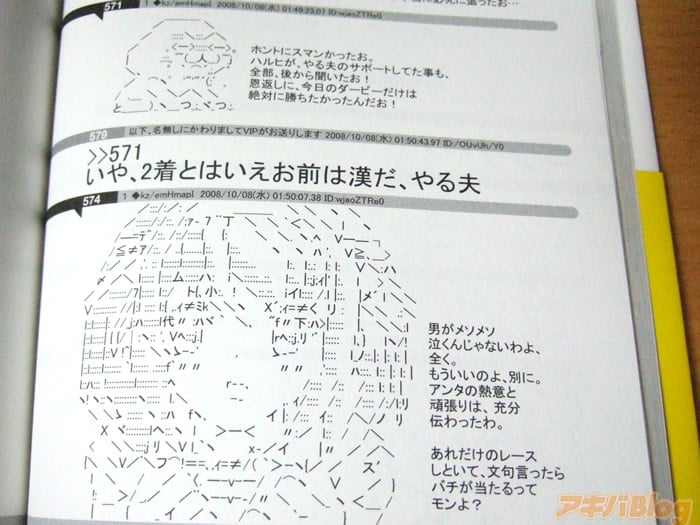 571
1 ◆kz/emHmapI 2008/10/08(水) 01:49:23.07 ID:wjaoZTRe0
ホントにスマンかったお。
ハルヒが、やる夫のサポートしてた事も、
全部、後から聞いたお！
恩返しに、今日のダービーだけは
絶対に勝ちたかったんだお！
579
以下、名無しにかわりましてVIPがお送りします 2008/10/08(水) 01:50:43.97 ID:/OUvUh/Y0
>>571
いや、2着とはいえお前は漢だ、やる夫
574
1 ◆kz/emHmapI 2008/10/08(水) 01:50:07.38 ID:wjaoZTRe0
男がメソメソ
泣くんじゃないわよ、
全く。
もういいのよ、別に。
アンタの熱意と
頑張りは、充分
伝わったわ。
あれだけのレース
しといて、文句言ったら
バチが当たるって
モンよ？
アキバBlog